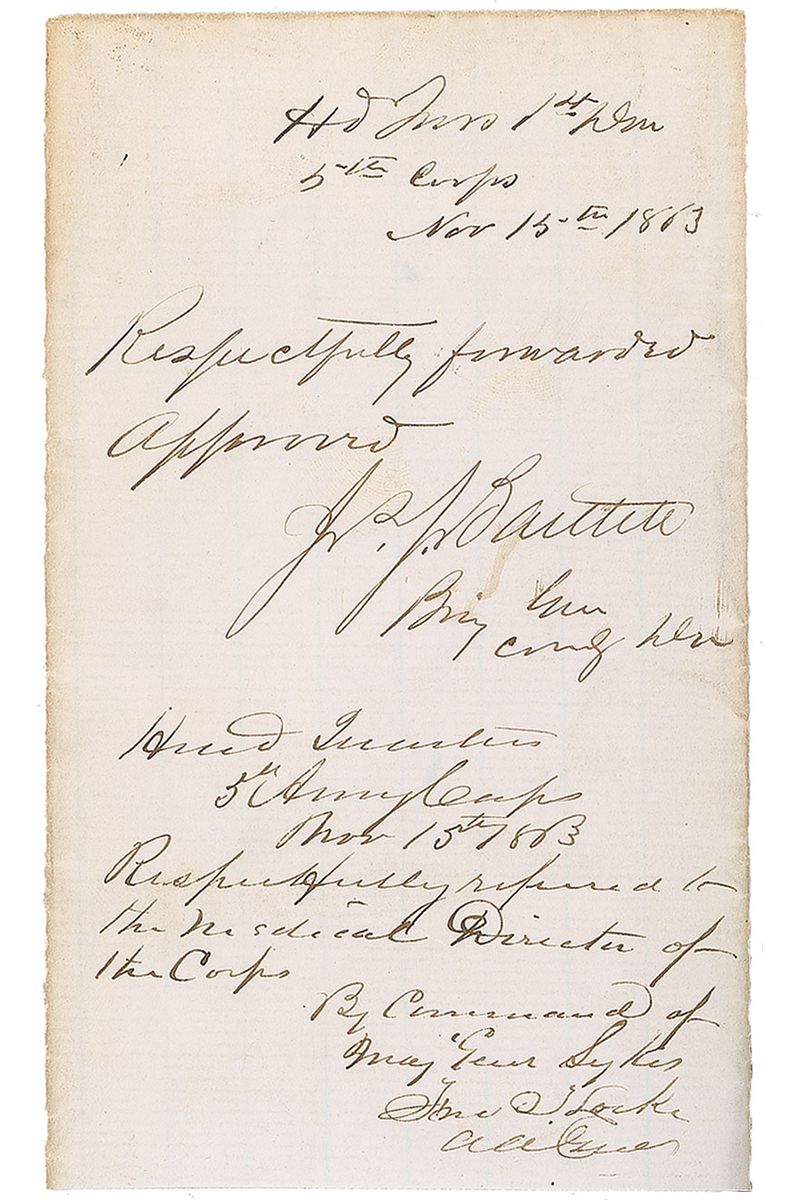 Hd Qurs 1st Divn
5th Corps
Nov 15th 1863
Respectfully forwarded
Approved
Js. J. Bartlett
Brig Gen
Comdg Divn
Head Quarters
5th Army Corps
Nov 15th 1863
Respectfully referred to
the Medical Director of
the Corps
By Command of
Maj Genr Sykes
Fred T Locke
A A Genl